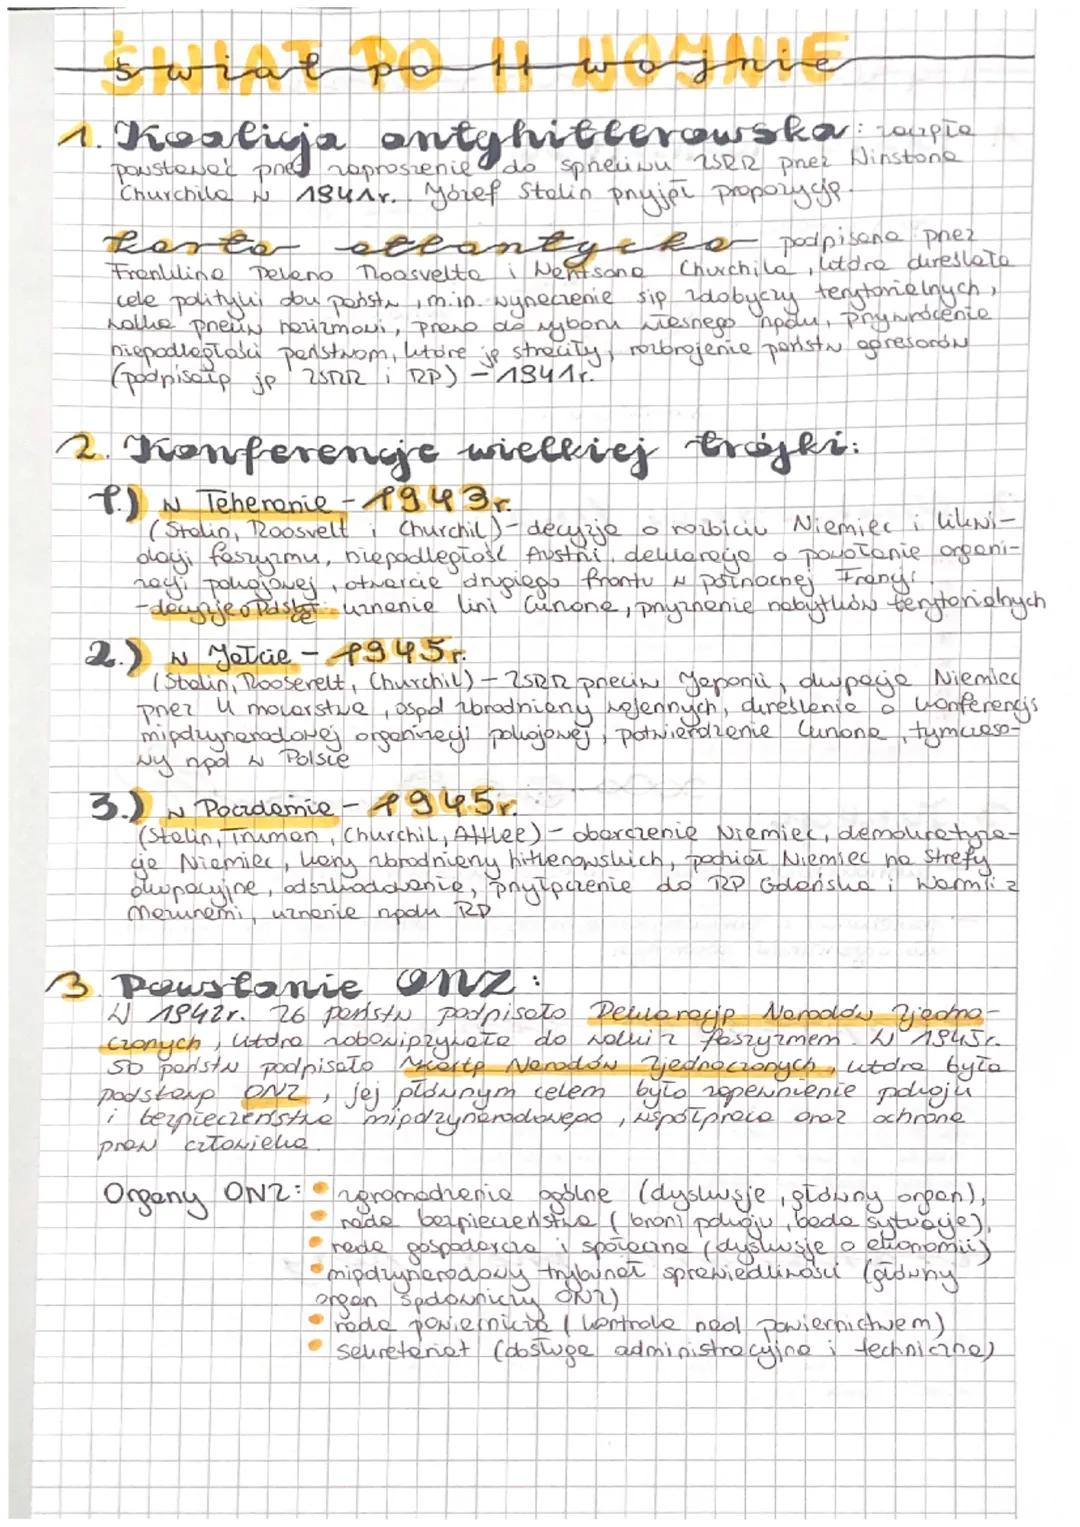 ŚWIAT PO II WOJNIE
1. Koalicja antyhitlerowska: zaczęła
powstawać przez zaproszenie do sprzeciwu ZSRR przez Winstona
Churchila w 1941r. Józef Stalin przyjął propozycję.
Karta atlantycka podpisana przez
Franklina Delano Roosvelta i Wintsona Churchila, która określała
cele polityki obu państw, m.in. wyrzeczenie się zdobyczy terytorialnych,
walka przeciw nazizmowi, prawo do wyboru własnego rządu, przywrócenie
niepodległości państwom, które ją straciły, rozbrojenie państw agresorów
(podpisały ją ZSRR i RP) - 1941r.
2. Konferencje wielkiej trójki:
1.) w Teheranie - 1943r.
(Stalin, Roosvelt i Churchil) - decyzja o rozbiciu Niemiec i likwi-
dacji faszyzmu, niepodległość Austrii, deklaracja o powołanie organi-
zacji pokojowej, otwarcie drugiego frontu w północnej Francji.
- decyzje o Polsce: uznanie lini Curzona, przyznanie nabytków terytorialnych
2.) w Jałcie - 1945r.
(Stalin, Rooserelt, Churchil) - ZSRR przeciw Japonii, okupacja Niemiec
przez 4 mocarstwa, osąd zbrodniarzy wojennych, określenie o konferencji
międzynarodowej organizacji pokojowej, potwierdzenie Curzona, tymczaso-
wy rząd w Polsce
3.) w Poczdamie - 1945r.
(Stalin, Truman, Churchil, Attlee) - obarczenie Niemiec, demokratyza-
cja Niemiec, kary zbrodniarzy hitlerowskich, podział Niemiec na strefy
okupacyjne, odszkodowanie, przyłączenie do RP Gdańska i Warmii z
Mazurami, uznanie rządu RP
3. Powstanie ONZ:
W 1942r. 26 państw podpisało Deklarację Narodów Zjedno-
czonych, która zobowiązywała do walki z faszyzmem. W 1945r.
50 państw podpisało Kartę Narodów Zjednoczonych, która była
podstawą ONZ, jej głównym celem było zapewnienie pokoju
i bezpieczeństwa międzynarodowego, współpraca oraz ochrona
praw człowieka.
Organy ONZ: • zgromadzenie ogólne (dyskusje, główny organ),
• rada bezpieczeństwa (broni pokoju, bada sytuacje),
• rada gospodarcza i społeczna (dyskusje o ekonomii)
• międzynarodowy trybunał sprawiedliwości (główny
organ sądowniczy ONZ)
• rada powiernicza (kontrola nad powiernictwem)
• sekretariat (obsługa administracyjna i techniczna)